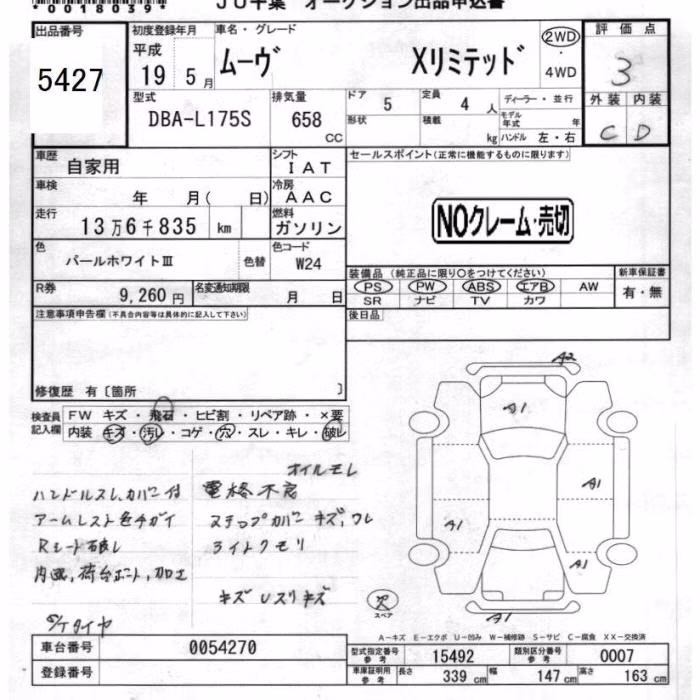 *00180394*
JU千葉 オークション出品申込書
出品番号
5427
初度登録年月
平成
19 5月
車名・グレード
ムーヴ Xリミテッド
2WD
・
4WD
評価点
3
型式
DBA-L175S
排気量
658
CC
ドア 5
定員 4 人
形状
積載 kg
ディーラー・並行
モデル年式 年
ハンドル 左・右
外装 内装
C D
車歴
自家用
シフト
IAT
車検
年 月( 日)
冷房
AAC
走行
13万6千835 km
燃料
ガソリン
色
パールホワイトⅢ
色替
色コード
W24
R券
9,260円
名変通知期限
月 日
セールスポイント(正常に機能するものに限ります)
NOクレーム・売切
装備品(純正品に限り〇をつけてください)
新車保証書
PS PW ABS エアB AW
SR ナビ TV カワ
有・無
後日品
注意事項申告欄(不具合内容等は具体的に記入して下さい)
修復歴 有〔箇所 〕
検査員
記入欄
FW キズ・飛石・ヒビ割・リペア跡・×要
内装 キズ・汚レ・コゲ・穴・スレ・キレ・破レ
オイルモレ
ハンドルスレ、カバー付
電格不良
アームレスト色チガイ
ステップカバー キズ、ワレ
Rシート破レ
ライトクモリ
加工
キズ Uスリキズ
S/Tタイヤ
A2
A1
A1
A1
A1
A1
スペア
A-キズ E-エクボ U-凹み W-補修跡 S-サビ C-腐食 XX-交換済
車台番号
0054270
登録番号
型式指定番号
参考
15492
類別区分番号
参考
0007
車庫証明用
参考
長さ 339 cm 幅 147 cm 高さ 163 cm